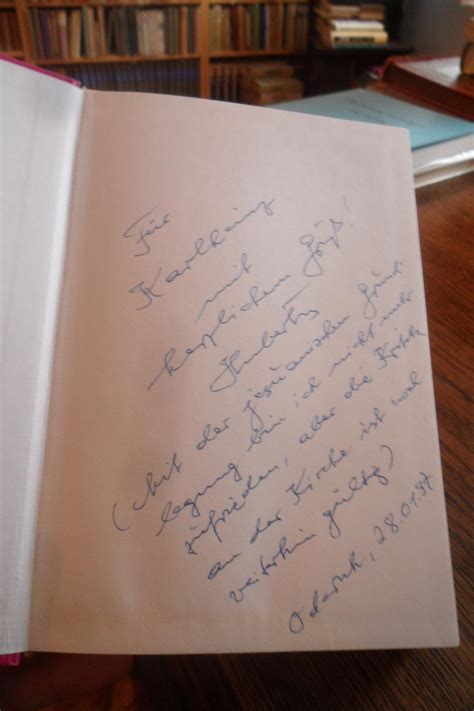 Für
Karlheinz
mit
herzlichem Gruß!
Hubertus
(Mit der jesuanischen Grund-
legung bin ich nicht mehr
zufrieden, aber die Kritik
an der Kirche ist noch
weiterhin gültig)
28.01.97